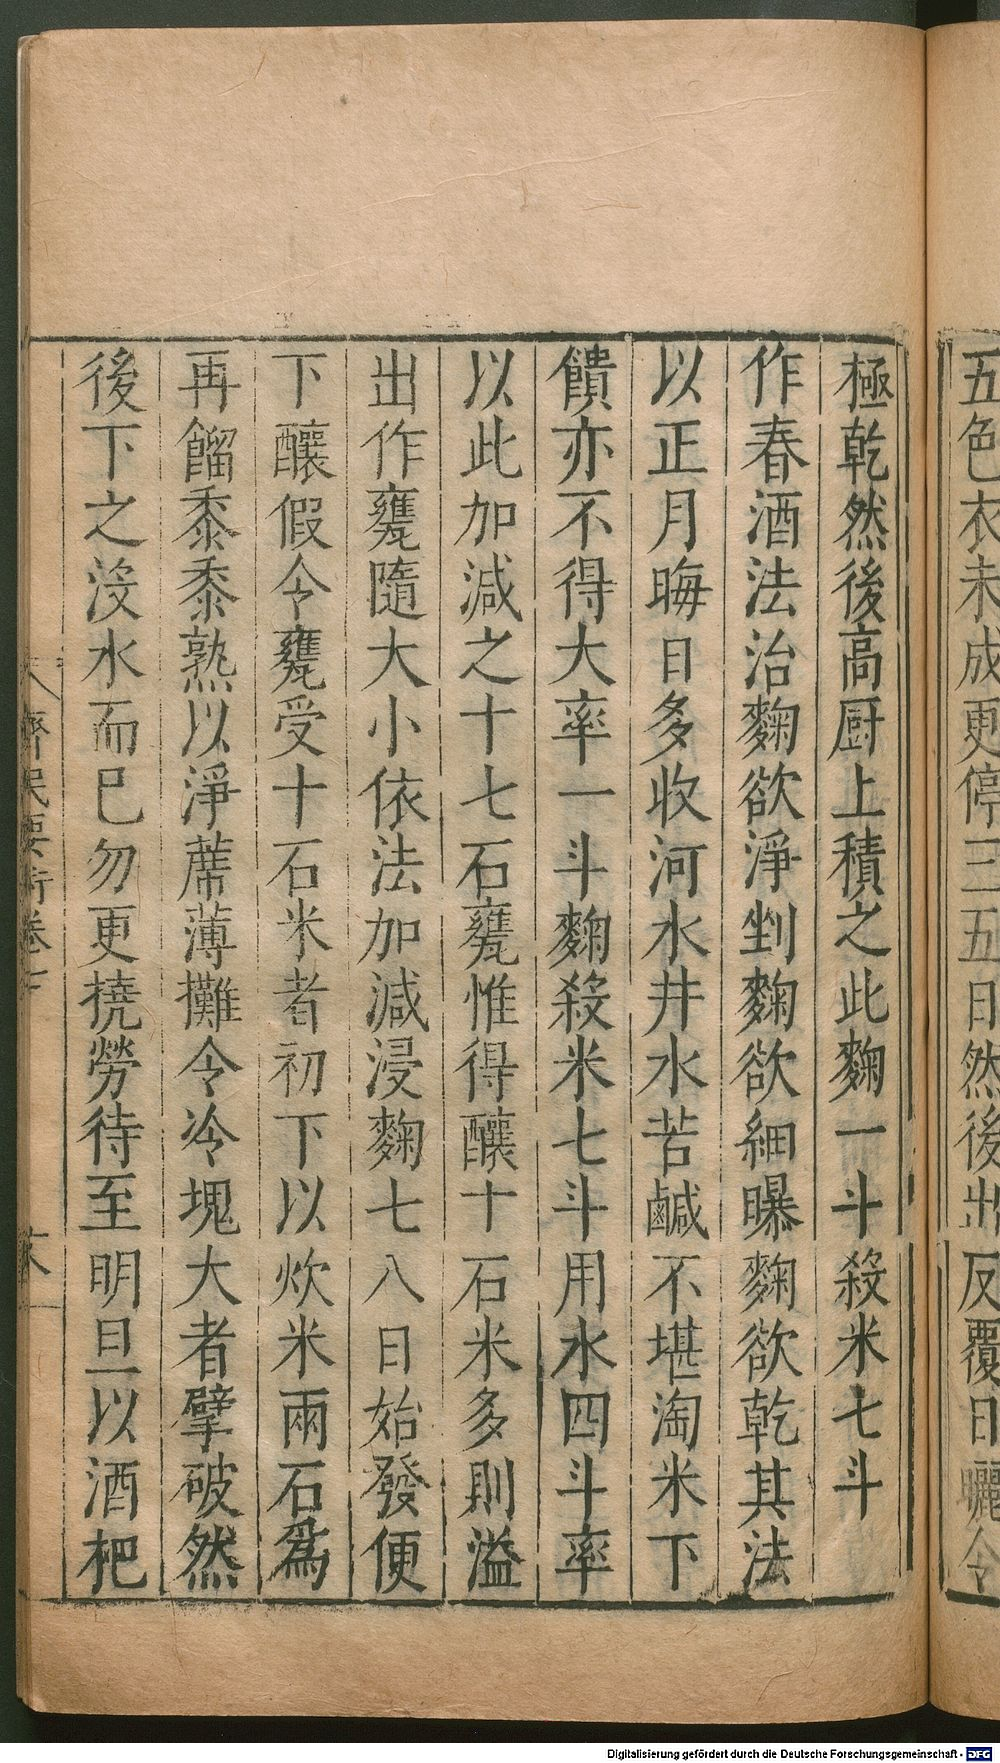 五色衣未成更停三五日然後出反覆日曬令
極乾然後高厨上積之此麴一斗殺米七斗
作春酒法治麴欲淨剉麴欲細曝麴欲乾其法
以正月晦日多收河水井水苦鹹不堪淘米下
饙亦不得大率一斗麴殺米七斗用水四斗率
以此加減之十七石甕惟得釀十石米多則溢
出作甕隨大小依法加減浸麴七八日始發便
下釀假令甕受十石米者初下以炊米兩石為
再餾黍黍熟以淨蓆薄攤令冷塊大者擘破然
後下之没水而已勿更撓勞待至明旦以酒杷
齊民要術卷七
Digitalisierung gefördert durch die Deutsche Forschungsgemeinschaft - DFG